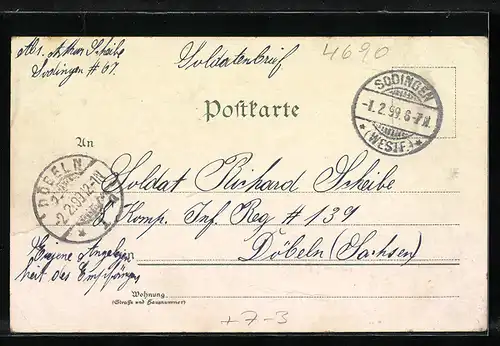 Abs. Arthur Scheibe
Sodingen # 67.
Soldatenbrief
4690
SODINGEN
-1.2.99.6-7N.
* (WESTF.) *
Postkarte
An
DÖBELN
2.2.99.
Soldat Richard Scheibe
Komp. Inf. Reg # 139
Döbeln (Sachsen)
Eigene Angelegen
heit des Empfängers
Wohnung
(Straße und Hausnummer)
+7-3